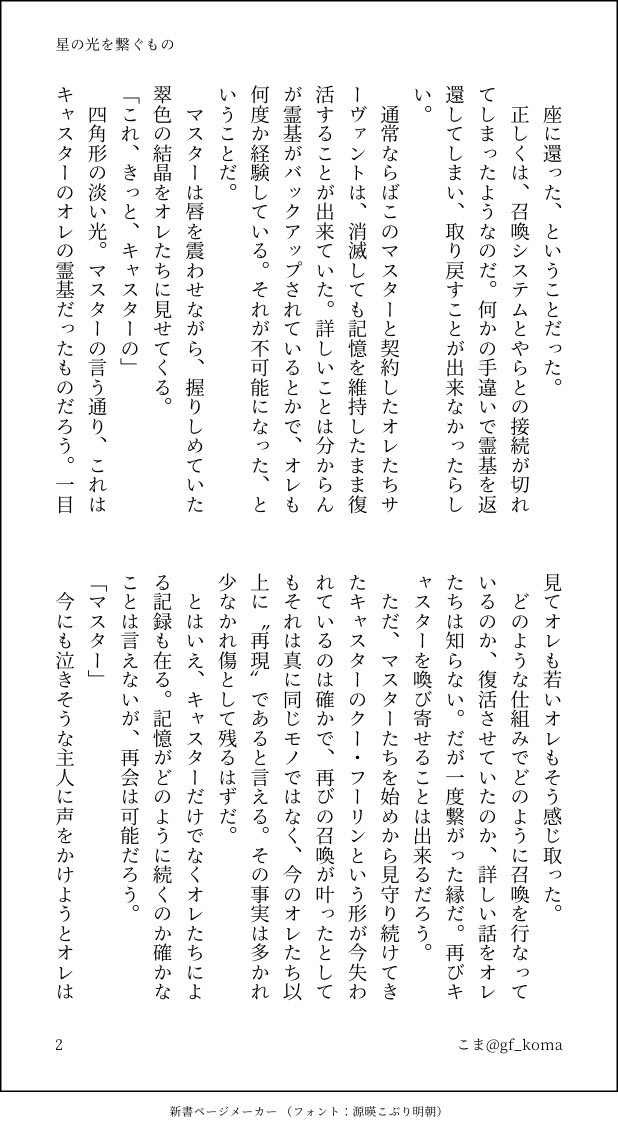 星の光を繋ぐもの
　座に還った、ということだった。
　正しくは、召喚システムとやらとの接続が切れ
てしまったようなのだ。何かの手違いで霊基を返
還してしまい、取り戻すことが出来なかったらし
い。
　通常ならばこのマスターと契約したオレたちサ
ーヴァントは、消滅しても記憶を維持したまま復
活することが出来ていた。詳しいことは分からん
が霊基がバックアップされているとかで、オレも
何度か経験している。それが不可能になった、と
いうことだ。
　マスターは唇を震わせながら、握りしめていた
翠色の結晶をオレたちに見せてくる。
「これ、きっと、キャスターの」
　四角形の淡い光。マスターの言う通り、これは
キャスターのオレの霊基だったものだろう。一目
見てオレも若いオレもそう感じ取った。
　どのような仕組みでどのように召喚を行なって
いるのか、復活させていたのか、詳しい話をオレ
たちは知らない。だが一度繋がった縁だ。再びキ
ャスターを喚び寄せることは出来るだろう。
　ただ、マスターたちを始めから見守り続けてき
たキャスターのクー・フーリンという形が今失わ
れているのは確かで、再びの召喚が叶ったとして
もそれは真に同じモノではなく、今のオレたち以
上に〝再現〟であると言える。その事実は多かれ
少なかれ傷として残るはずだ。
　とはいえ、キャスターだけでなくオレたちによ
る記録も在る。記憶がどのように続くのか確かな
ことは言えないが、再会は可能だろう。
「マスター」
　今にも泣きそうな主人に声をかけようとオレは
2
こま@gf_koma
新書ページメーカー（フォント：源暎こぶり明朝）